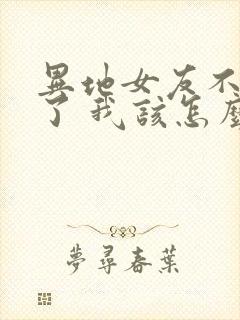 異地女友不
了我該怎麼
夢尋春葉